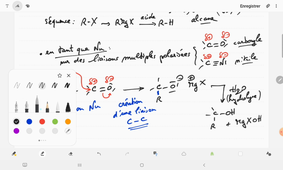 Enregistrer
séquence: R-X → RMgX acide → R-H
alcane
• en tant que Nu
sur des liaisons multiples polarisées
C=O carbonyle
C≡N nitrile
C=O → -C-O⊖ ⊕MgX
R
H₂O
(hydrolyse)
en Nu
création
d'une liaison
C-C
-C-OH
R
+ MgXOH